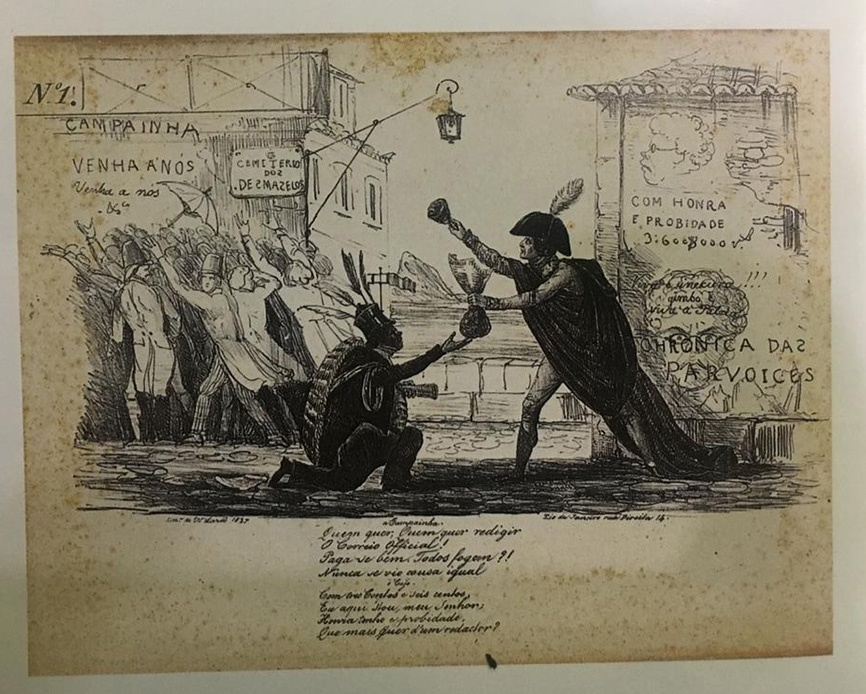 Nº 1.
CAMPAINHA
VENHA A NÓS
Venha a nós
&c.ª
O
CEMETERIO
DOS
DESMAZELOS
COM HONRA
E PROBIDADE
3:600$000
!!!
CHRONICA DAS
PARVOICES
Lith. de Vr Larée 1837
Rio de Janeiro rua Direita 14.
a Campainha.
Quem quer, Quem quer redigir
O Correio Official!
Paga-se bem. Todos fogem?!
Nunca se vio cousa igual
o Cujo.
Com tres Contos e seis centos,
Eu aqui 'stou, meu Senhor;
Honra tenho e probidade.
Que mais quer d'um redactor?